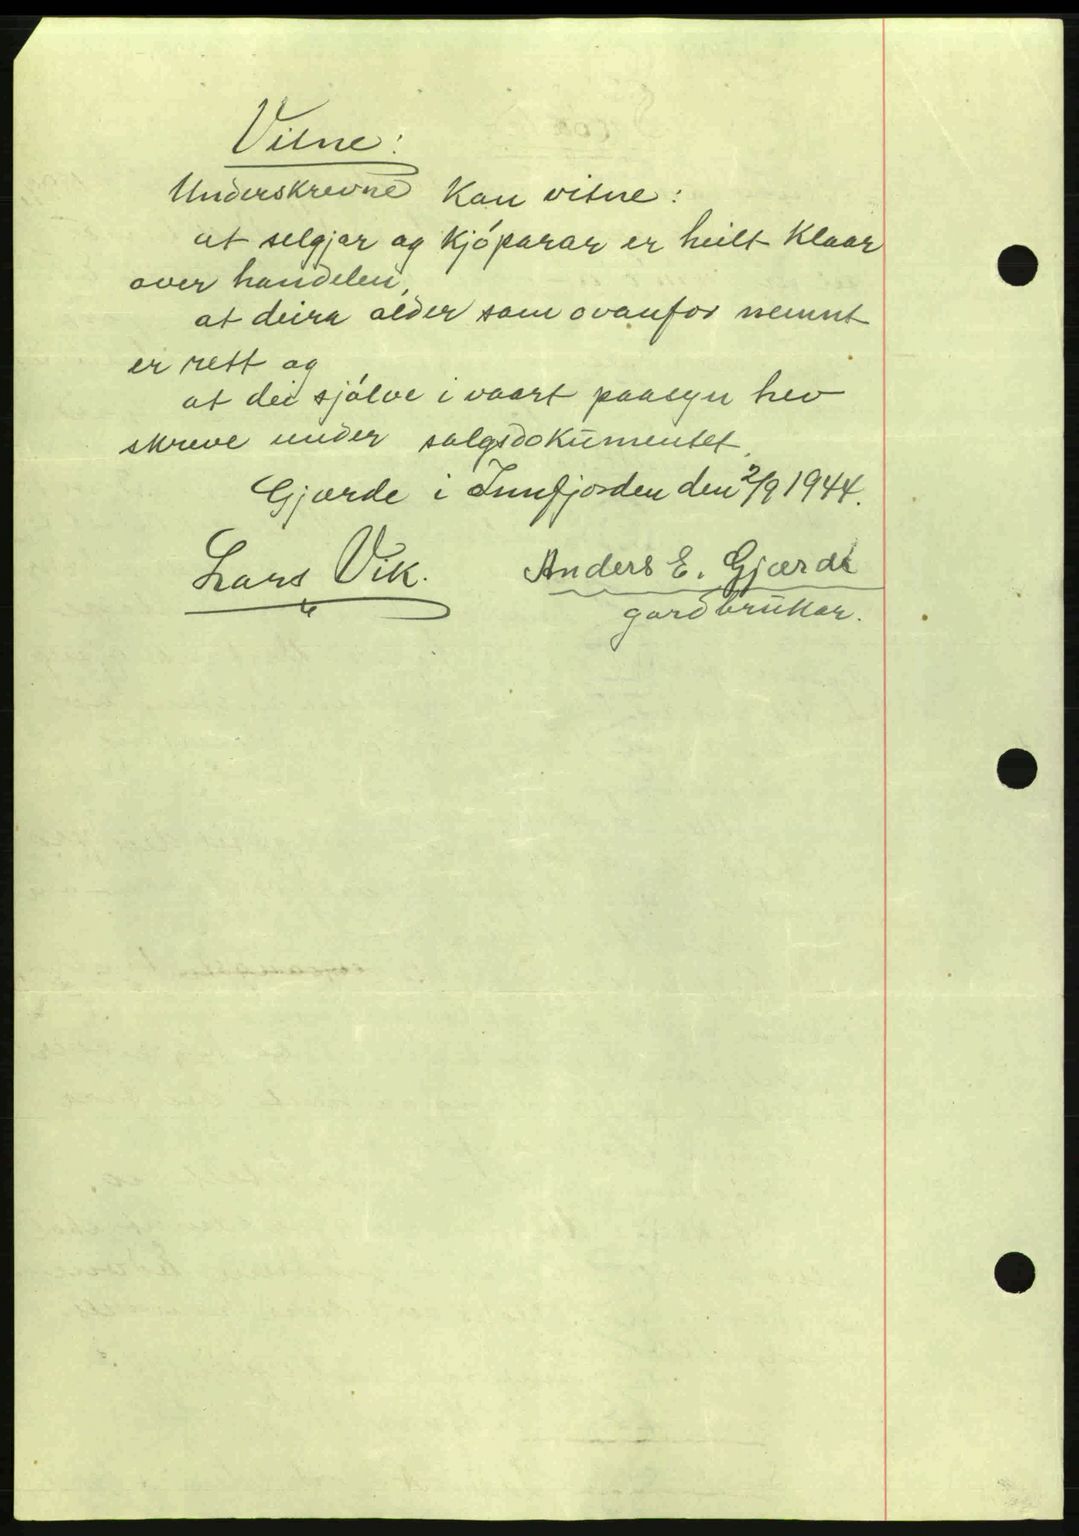 Vitne:
Underskrevne kan vitne:
at selgjar og kjóparar er heilt klaar
over handelen,
at deira alder som ovanfor nemnt
er rett og
at dei sjólve i vaart paasyn hev
skreve under salgsdokumentet.
Gjærde i Innfjorden den 2/9 1944.
Lars Vik. Anders E. Gjærde
gardbrukar.